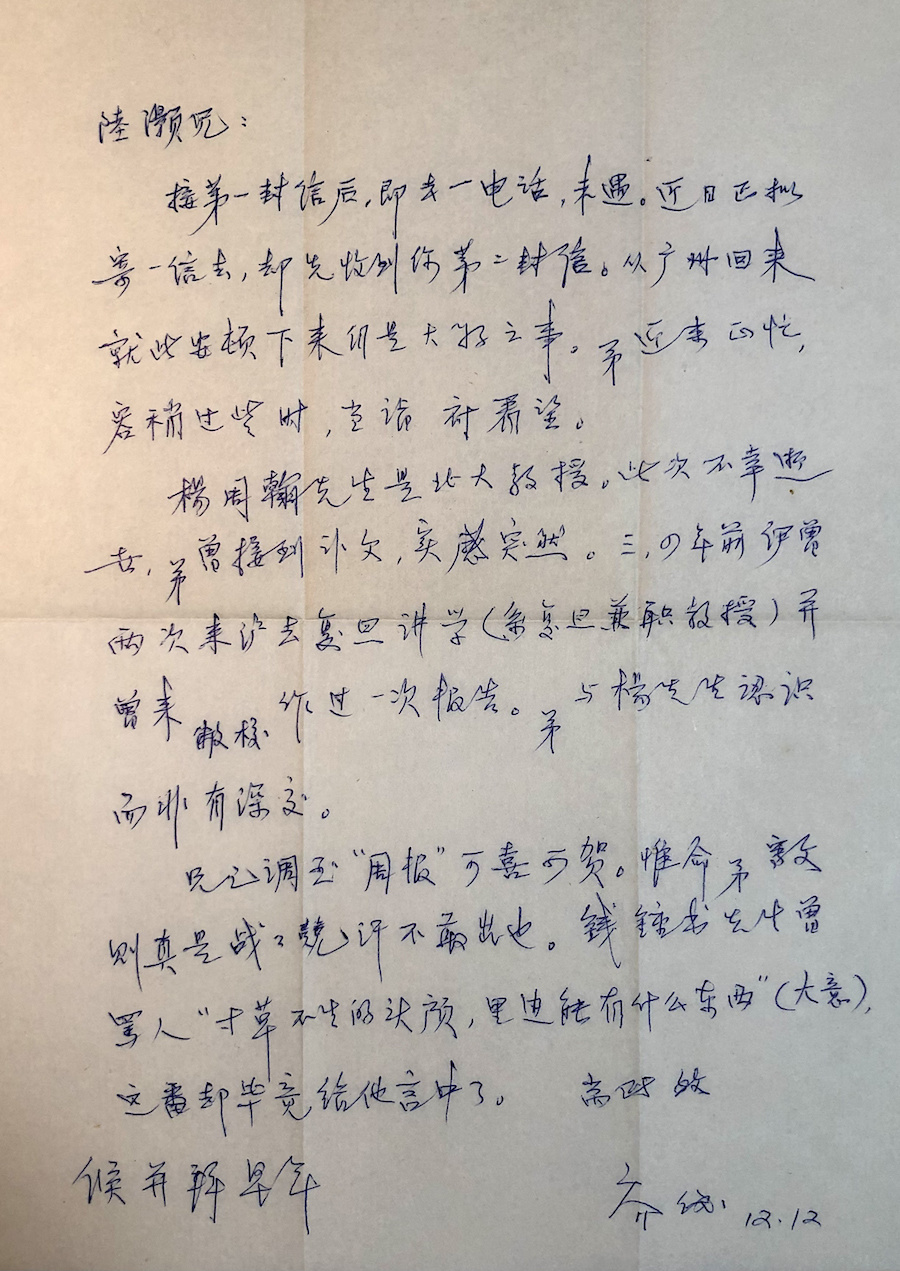 陸灏兄：
接第一封信后，即去一电话，未遇。近日正拟
寄一信去，却先收到你第二封信。从广州回来
就此安顿下来仍是大好之事。弟近来正忙，
容稍过些时，当诣府看望。
楊周翰先生是北大教授。此次不幸逝
世，弟曾接到讣文，实感突然。三，四年前伊曾
两次来沪去复旦讲学（系复旦兼职教授）并
曾来敝校作过一次报告。弟与楊先生認识
而非有深交。
兄之调至“周报”可喜可贺。惟命弟撰文
则真是战々兢〻不敢出也。钱锺书先生曾
骂人“寸草不生的头颅，里边能有什么东西”（大意），
这番却毕竟给他言中了。　　耑此　致
候并拜早年
　12.12